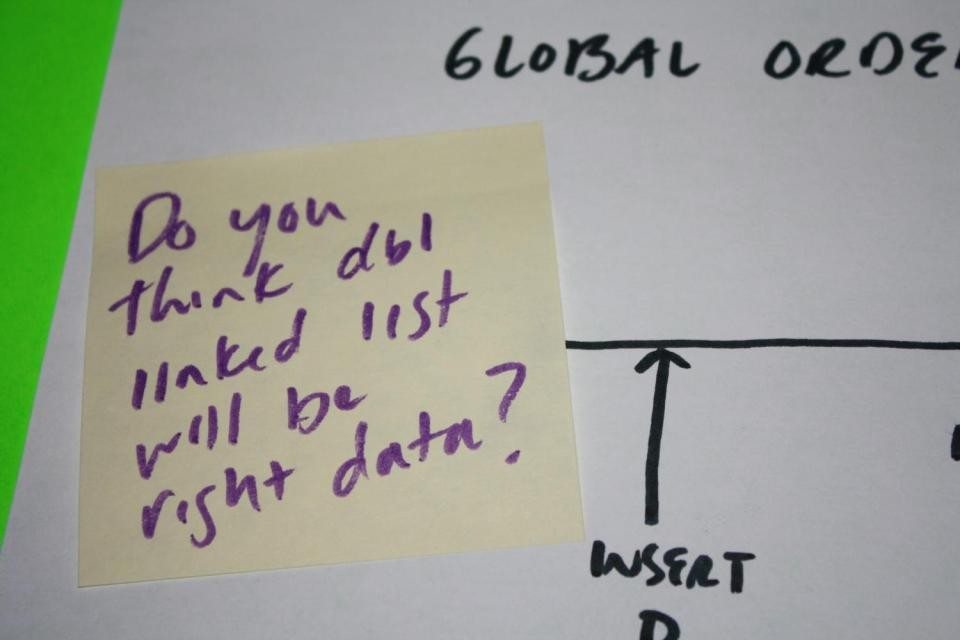 GLOBAL ORDE
Do you
think dbl
linked list
will be
right data?
INSERT